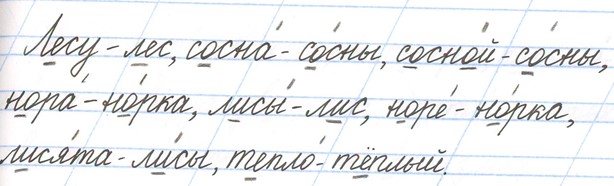 Лесу - лес, сосна́ - со́сны, сосно́й - со́сны,
нора́ - но́рка, лисы́ - лис, норе́ - но́рка,
лися́та - ли́сы, тепло́ - тёплый.